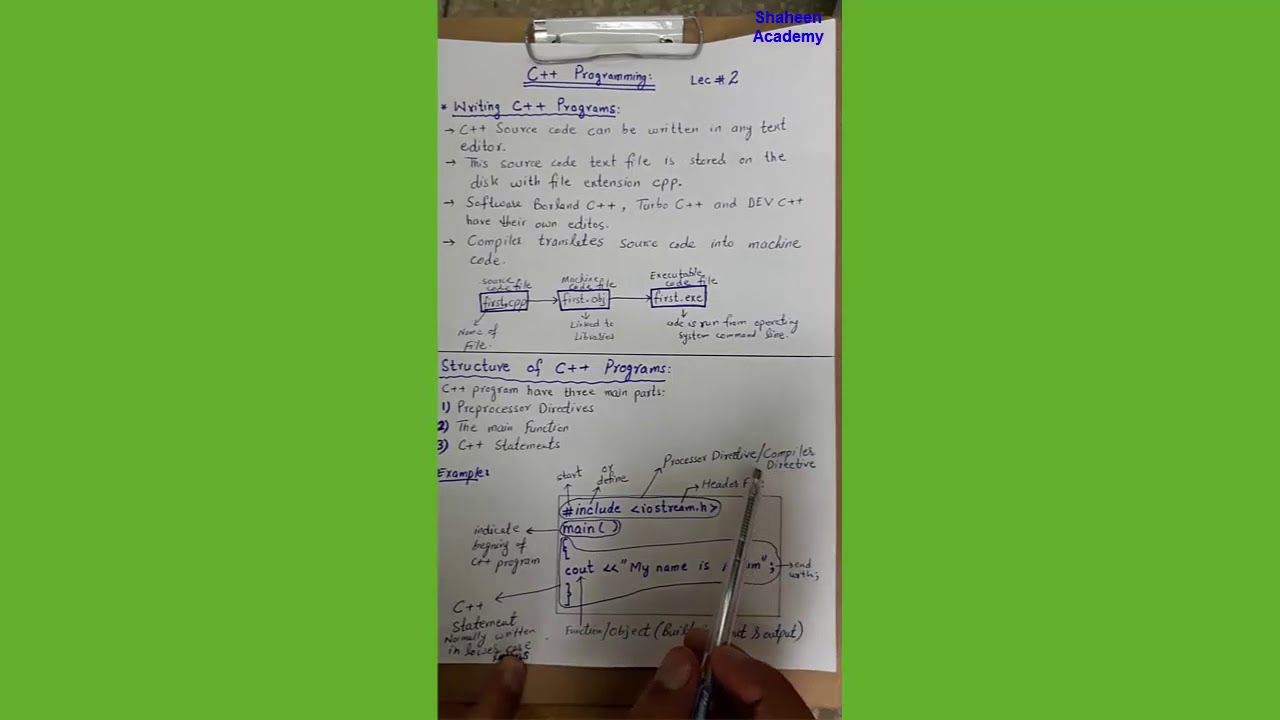 Shaheen
Academy
C++ Programming: Lec # 2
* Writing C++ Programs:
→ C++ Source code can be written in any text
editor.
→ This source code text file is stored on the
disk with file extension cpp.
→ Software Borland C++, Turbo C++ and DEV C++
have their own editos.
→ Compiler translates source code into machine
code.
Source code file
Machine code file
Executable code file
first.cpp → first.obj → first.exe
Name of File.
Linked to Libraries
code is run from operating
system command line.
Structure of C++ Programs:
C++ program have three main parts:
1) Preprocessor Directives
2) The main Function
3) C++ Statements
Example:
start
or define
Processor Directive/Compiler Directive
Header
#include <iostream.h>
main( )
indicate
begning of
C++ program
{
cout << "My name is
";
end with;
}
C++
Statement
Normally written
in lower case
Function/Object (
output)